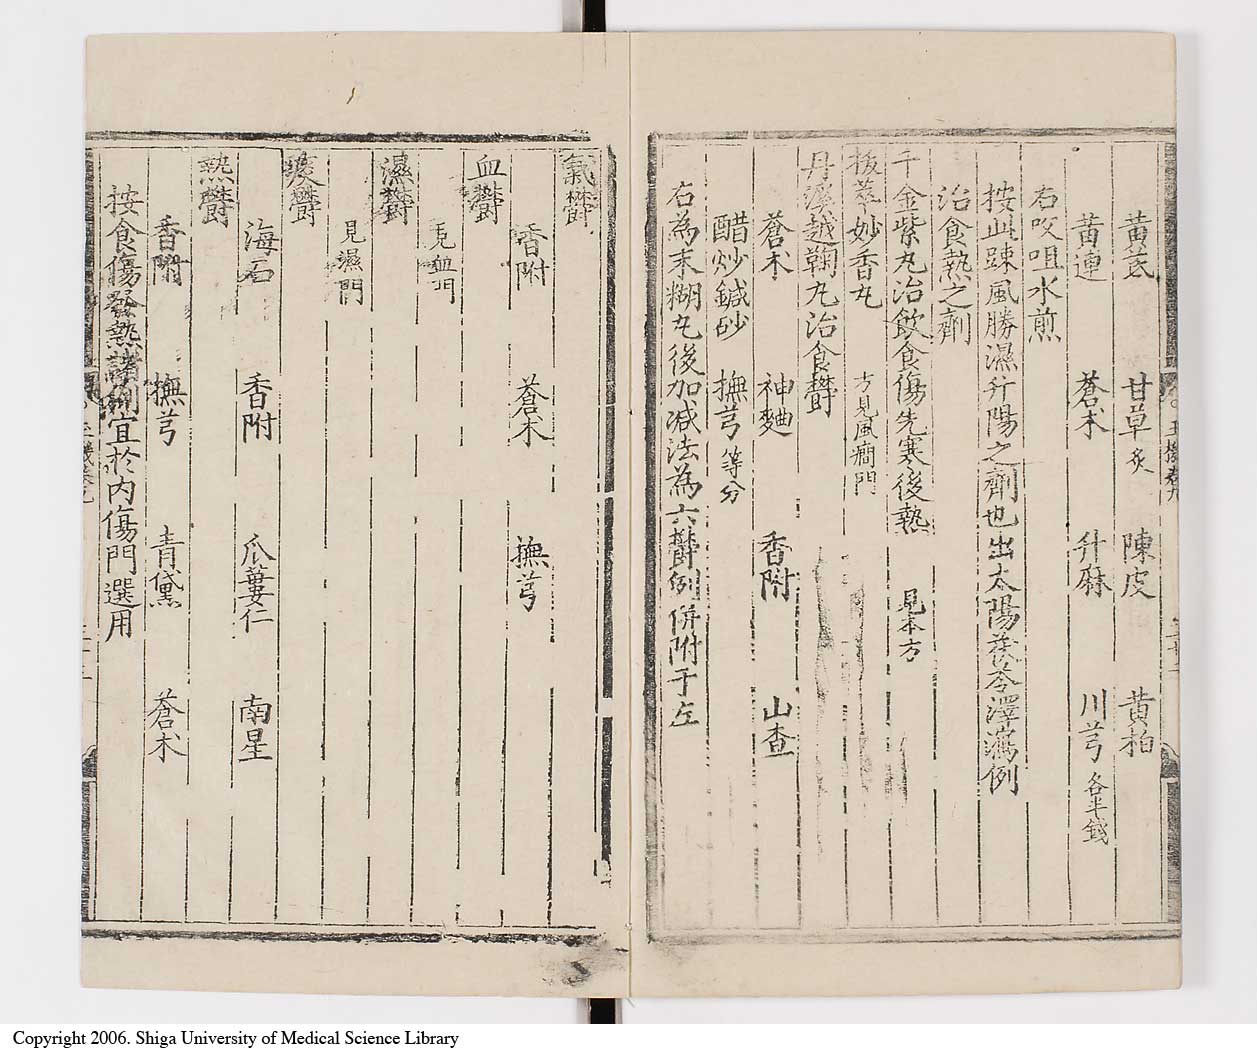 黄芪 甘草炙 陳皮 黄柏
黄連 蒼术 升麻 川芎各半錢
右㕮咀水煎
按此踈風勝濕升陽之劑也出太陽茯苓澤瀉例
治食熱之劑
千金紫丸治飲食傷先寒後熱 見本方
抜萃妙香丸 方見風癇門
丹溪越鞠丸治食欝
蒼术 神麯 香附 山查
醋炒鍼砂 撫芎等分
右為末糊丸後加减法為六欝例併附于左
氣欝
香附 蒼术 撫芎
血欝
見血門
濕欝
見濕門
痰欝
海石 香附 瓜蔞仁 南星
熱欝
香附 撫芎 青黛 蒼术
按食傷發熱諸例宜於内傷門選用
Copyright 2006. Shiga University of Medical Science Library